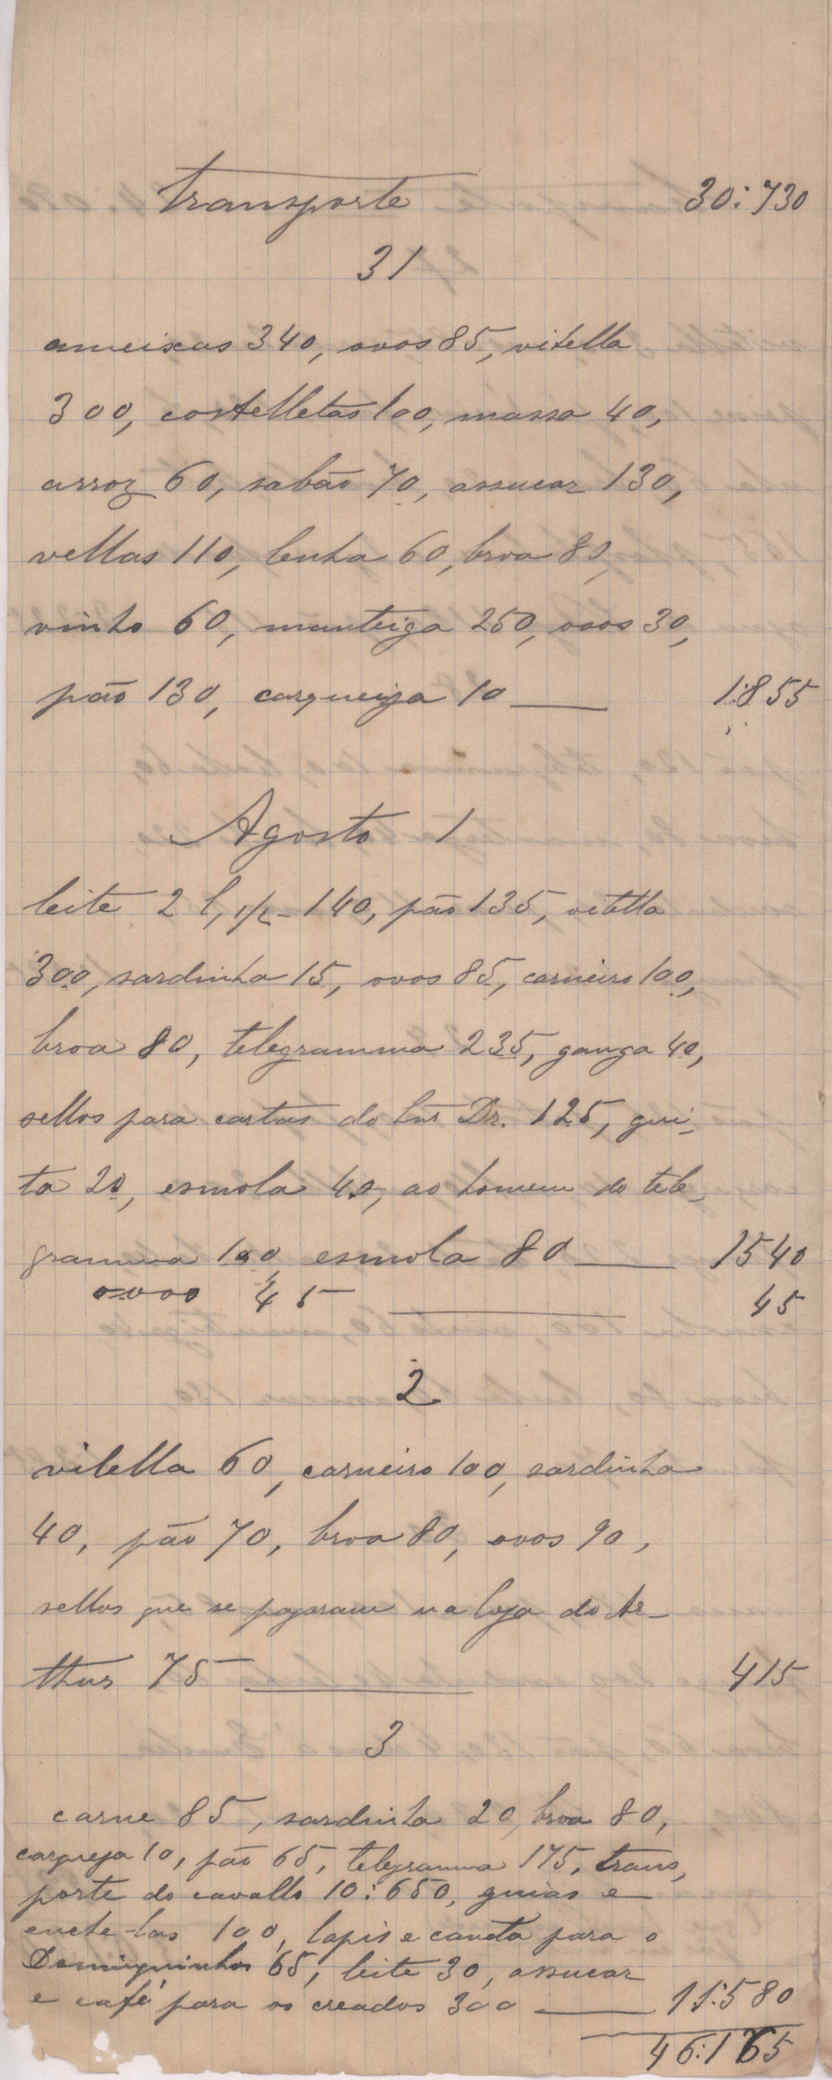 Transporte 30:730
31
ameixas 340, ovos 85, vitella
300, costelletas 100, massa 40,
arroz 60, sabão 70, assucar 130,
vellas 110, lenha 60, broa 80,
vinho 60, manteiga 250, ovos 30,
pão 130, carqueija 10 1:855
Agosto 1
leite 2 l, 1/2 - 140, pão 135, vitella
300, sardinha 15, ovos 85, carneiro 100,
broa 80, telegramma 235, ganga 40,
sellos para cartas do Snr Dr. 125, gui-
ta 20, esmola 40, ao homem do tele-
gramma 100, esmola 80 1540
ovos 45 45
2
vitella 60, carneiro 100, sardinha
40, pão 70, broa 80, ovos 90,
sellos que se pagaram na loja do Ar-
thur 75 415
3
carne 85, sardinha 20, broa 80,
carqueja 10, pão 65, telegramma 175, trans-
porte do cavallo 10:650, guias e
100, lapis e caneta para o
Dominguinhos 65, leite 30, assucar
e café para os creados 300 11:580
46:165